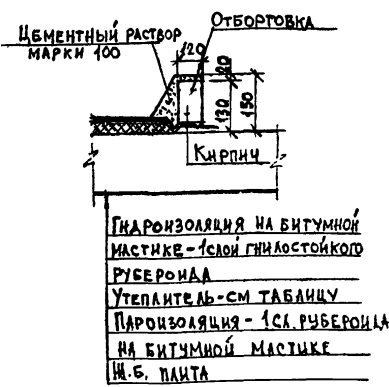 Отбортовка
Цементный раствор
марки 100
120
20
130
150
Кирпич
Гидроизоляция на битумной
мастике-1слой гнилостойкого
рубероида
Утеплитель-см таблицу
Пароизоляция-1сл. рубероида
на битумной мастике
Ж.Б. плита